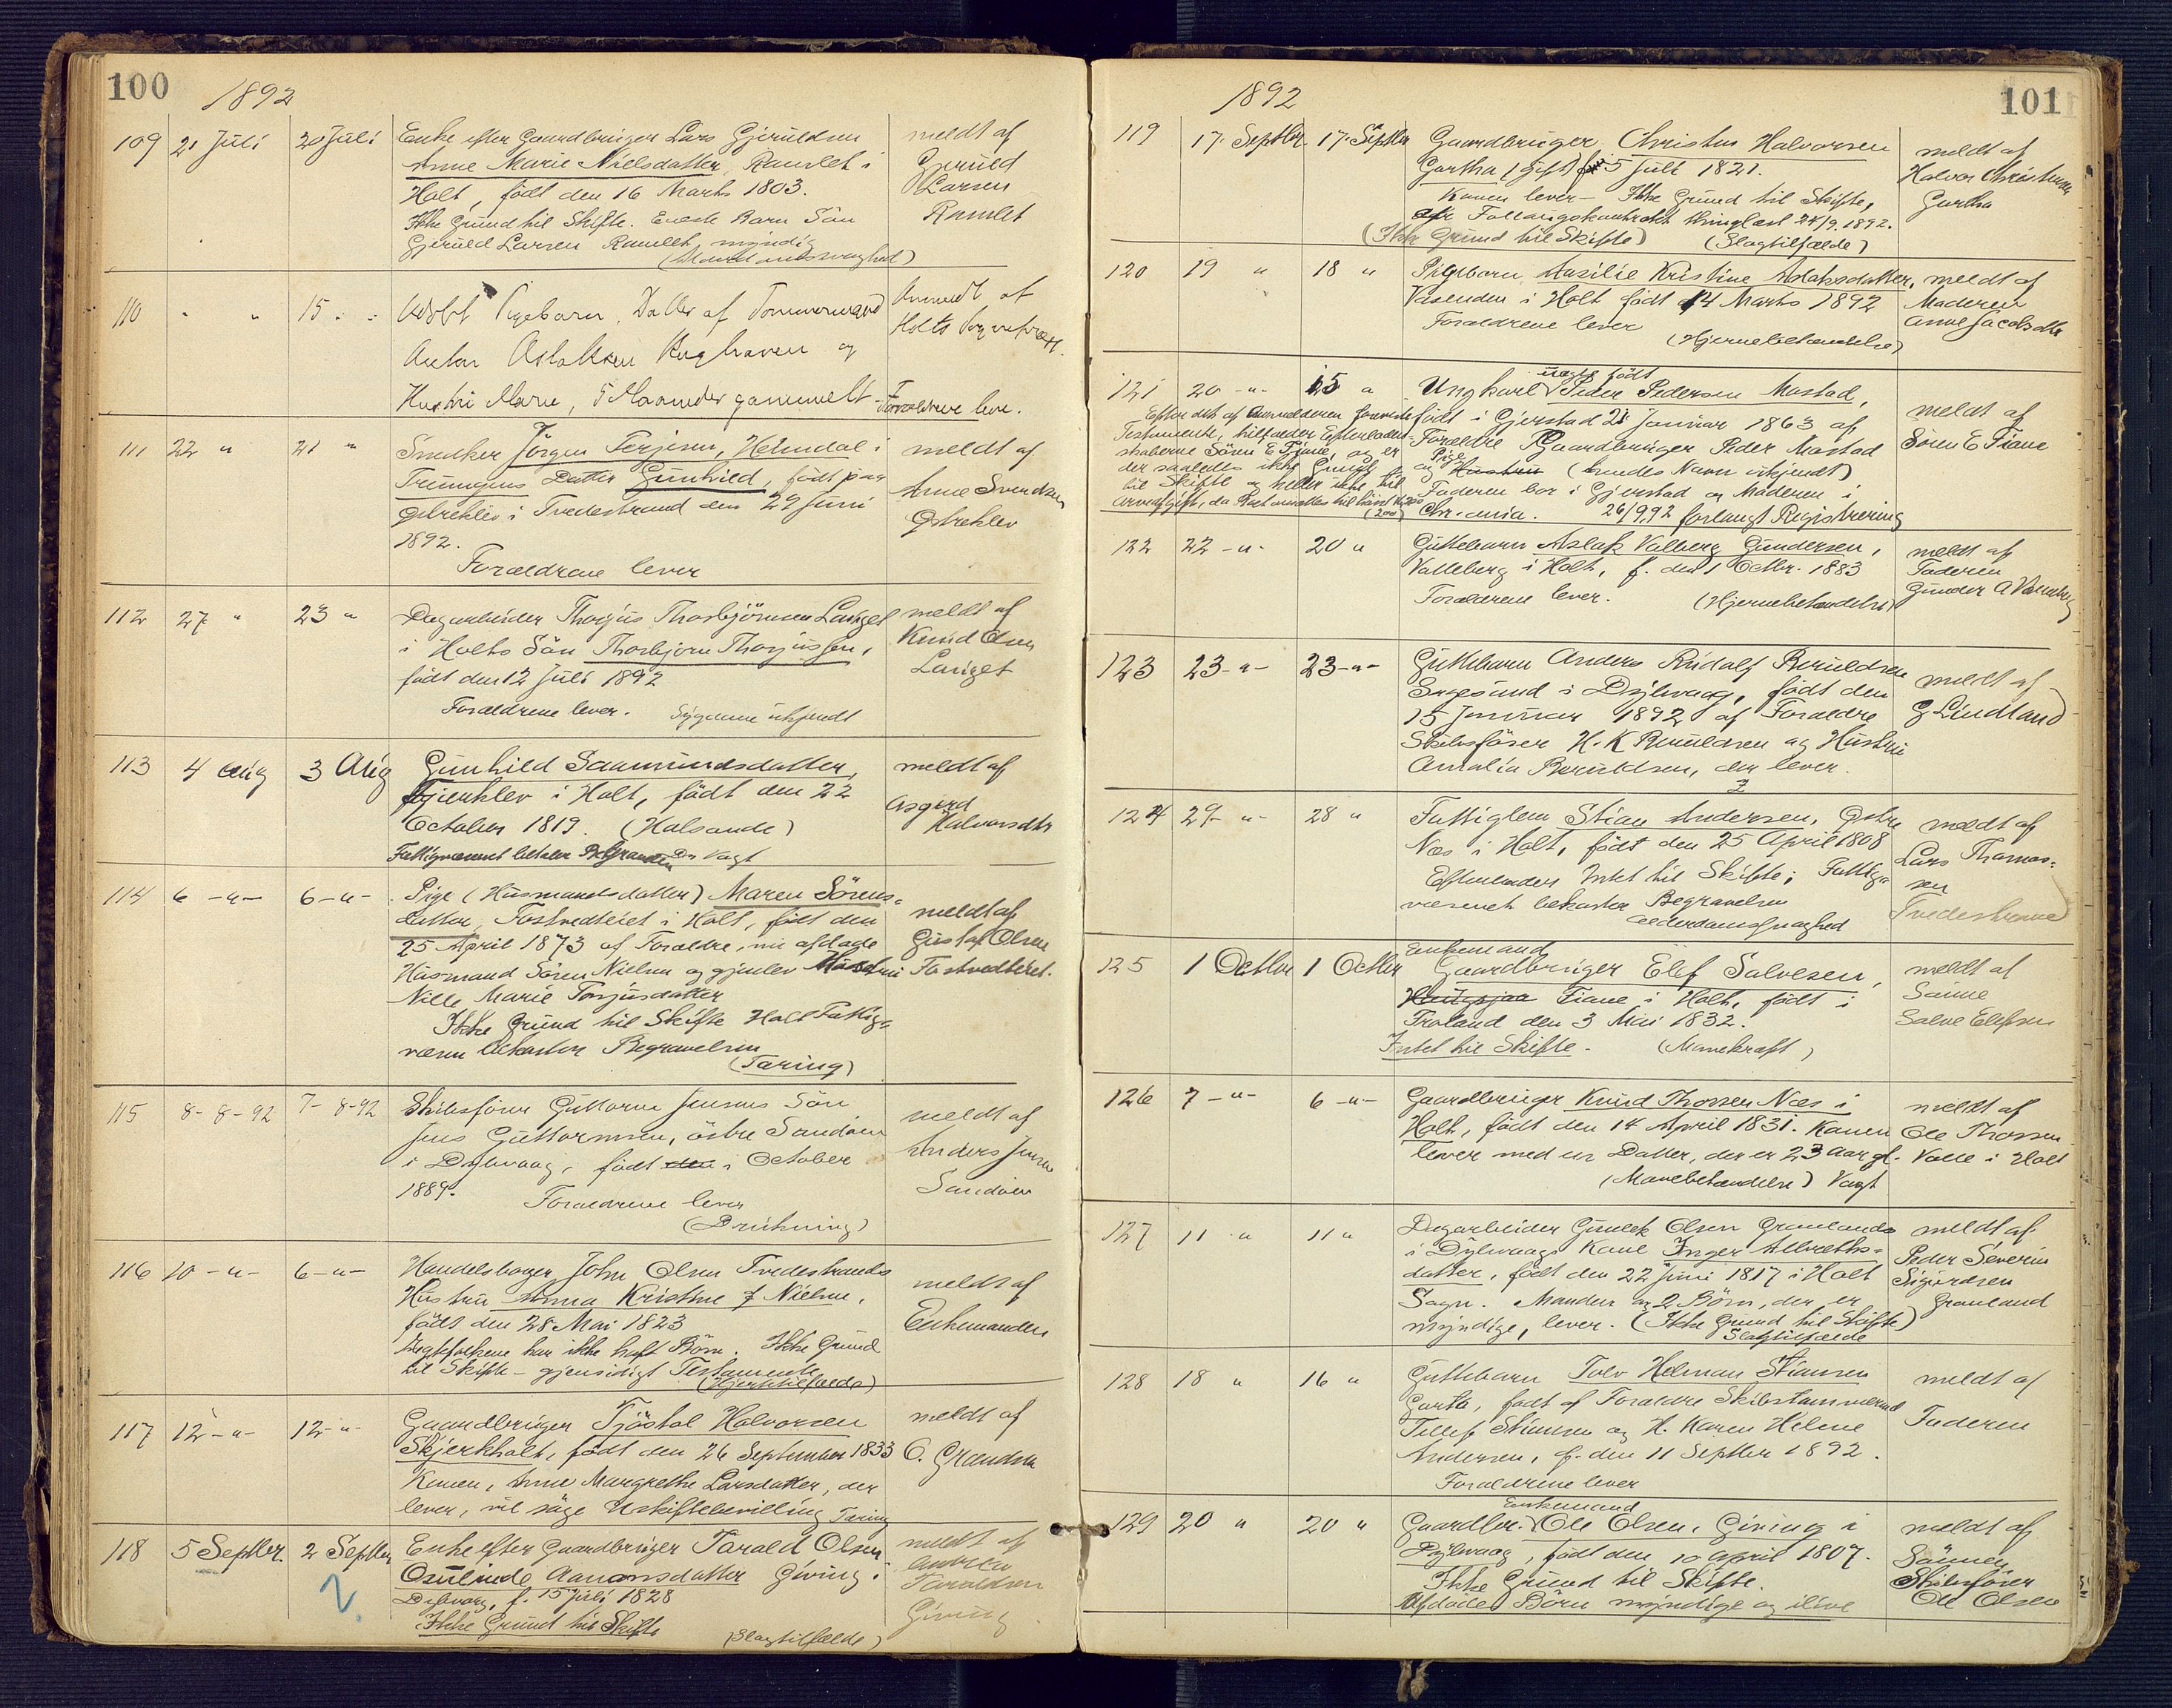 100
1892
109 21 Juli 20 Juli Enke efter Gaardbruger Lars Gjeruldsen meldt af
Anne Marie Nielsdatter, Ramlet i Gjeruld
Holt, født den 16 Marts 1803. Larsen
Ikke Grund til Skifte. Eneste Barn Sön Ramlet
Gjeruld Larsen Ramlet, myndig
110 " " 15 " " Pigebarn, Datter af Tömmermand Anmeldt af
Anton Aslaksen og Holts Sogneprest.
Hustru Marie, 5 Maaneder gammelt - Forældrene leve.
111 22 " 21 " Snedker Jörgen Terjesen, Heimdal i meldt af
Datter Gunhild, født paa Anne Svendsen
Østreklev i Tvedestrand den 29 Juni Østreklev
1892.
Forældrene lever
112 27 " 23 " Dagarbeider Thorjus Thorbjörnsen Lauget meldt af
i Holts Sön Thorbjorn Thorjussen, Knud Olsen
født den 12 Juli 1892 Lauget
Forældrene lever. Sygdom ukjendt
113 4 Aug 3 Aug Gunhild Saamundsdatter, meldt af
i Holt, född den 22 Asgjerd
October 1819. (Halsonde) Halvorsdtr
Fattigvæsenet betaler Begravelsen Dr Vogt
114 6 -"- 6 -"- Pige (Husmandsdatter) Maren Sörens-
datter, Fostvedteiet i Holt, født den meldt af
25 April 1873 af Forældre, nu afdøde Gustaf Olsen
Husmand Sören Nielsen og gjenlev Hustru Fostvedteiet.
Nille Marie Torjusdatter
Ikke Grund til Skifte Holt Fattig-
væsen bekoster Begravelsen
(Tæring)
115 8-8-92 7-8-92 Skibsförer Guttorm Jensens Sön meldt af
Jens Guttormsen, östre Sandöen Anders Jensen
i Dybvaag, født den i October Sandöen
1889.
Forældrene lever
(Drukning)
116 10 -"- 6 -"- Handelsborger John Olsen Tvedestrands meldt af
Hustru Anna Kristine f Nielsen, Enkemanden
født den 28 Mai 1823
Ægtefolkene har ikke havt Børn. Ikke Grund
til Skifte - gjensidigt Testamente
(Hjertetilfælde)
117 12 -"- 12 -"- Gaardbruger Tjöstol Halvorsen meldt af
Skjerkholt, født den 26 September 1833 O. Grændsen
Konen, Anne Margrethe Larsdatter, der
lever, vil søge Uskiftebevilling Tæring
118 5 Septbr. 2 Septbr Enke efter Gaardbruger Tarald Olsen meldt af
Osulinde Aanonsdatter Giving i Andreas
Dybvaag, f. 15 Juli 1828 Taraldsen
Ikke Grund til Skifte (Slagtilfælde) Giving
2
101
1892
119 17. Septbr. 17. Septbr Gaardbruger Christen Halvorsen meldt af
Gartha (gift) f 5 Juli 1821. Halvor Christensen
Konen lever - Ikke Grund til Skifte, Gartha
Følaugskontrakt thinglæst 24/9. 1892.
(Ikke Grund til Skifte) (Slagtilfælde)
120 19 " 18 " Pigebarn Aasilie Kristine Aslaksdatter, meldt af
Vasenden i Holt født 14 Marts 1892 Moderen
Forældrene lever Anne Jacobsdtr
(Hjernebetændelse)
121 20 -"- 15 " Ungkarl uægte född Peder Pedersen Mostad, meldt af
Efter det af Anmelderen foreviste født i Gjerstad 21 Januar 1863 af Sören E Fiane
Testamente, tilfalder Efterladen- Forældre Gaardbruger Peder Mostad
skaberne Sören E Fiane, og er og Pige Hustru (hendes Navn ukjendt)
der saaledes ikke Grund Faderen bor i Gjerstad og Moderen i
til Skifte og heller ikke til Chr.ania. 26/9.92 forlangt Registrering
(200)
122 22 -"- 20 " Guttebarn Aslak Valberg Gundersen, meldt af
Valleberg i Holt, f. den 1 Octbr. 1883 Faderen
Forældrene lever. (Hjernebetændelse) Gunder A
123 23 -"- 23 -"- Guttebarn Anders Rudolf Beruldsen meldt af
i Dybvaag, født den G Lindland
15 Januar 1892 af Forældre
Skibsförer H. K Beruldsen og Hustru
Amalia Beruldsen, der lever.
124 29 -"- 28 " Fattiglem Stian Andersen, Østre meldt af
Næs i Holt, født den 25 April 1808 Lars Thomas-
Efterlader Intet til Skifte; Fattig- sen
væsenet bekoster Begravelsen Tvedestrand
Alderdomssvaghed
125 1 Octbr 1 Octbr Enkemand Gaardbruger Elef Salvesen, meldt af
Fiane i Holt, født i Sönne
Froland den 3 Mai 1832. Salve Elefsen
Intet til Skifte. (Mavekræft)
126 7 -"- 6 -"- Gaardbruger Knud Thorsen Næs i meldt af
Holt, født den 14 April 1831. Konen Ole Thorsen
lever med en Datter, der er 23 Aar gl. Valle i Holt
(Mavebetændelse) Vogt
127 11 " 11 " Dagarbeider Gunlek Olsen Grønlands meldt af
i Dybvaags Kone Inger Albretks- Peder Severin
datter, født den 22 Juni 1817 i Holt Sigurdsen
Sogn. Manden og 2 Börn, der er Grønland
myndige, lever. (Ikke Grund til Skifte)
Slagtilfælde
128 18 " 16 " Guttebarn Tolv Helman Stiansen meldt af
Garta, født af Forældre Skibstömmermand Faderen
Tellef Stiansen og H. Karen Helene
Andersen, f. den 11 Septbr 1892.
Forældrene lever
129 20 " 20 " Gaardbr. Enkemand Ole Olsen, Giving i meldt af
Dybvaag, født den 10 April 1807. Sönnen
Ikke Grund til Skifte. Skibsförer
Afdöde Börn myndige og ilive Ole Olsen